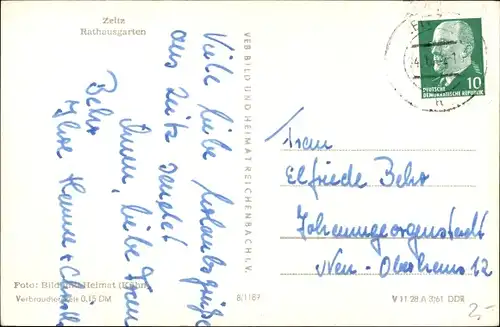 Zeitz
Rathausgarten
Viele liebe Urlaubsgrüße
aus Zeitz sendet
Ihnen, liebe Frau
Behr
Ihre Hanne +
Foto: Bild und Heimat (Kühn)
Verbraucherpreis 0,15 DM
VEB BILD UND HEIMAT REICHENBACH I. V.
B/1/87
10
DEUTSCHE
DEMOKRATISCHE REPUBLIK
Frau
Elfriede Behr
Johanngeorgenstadt
Neu-Oberhaus 12
V 11 28 A 3/61 DDR
2,-